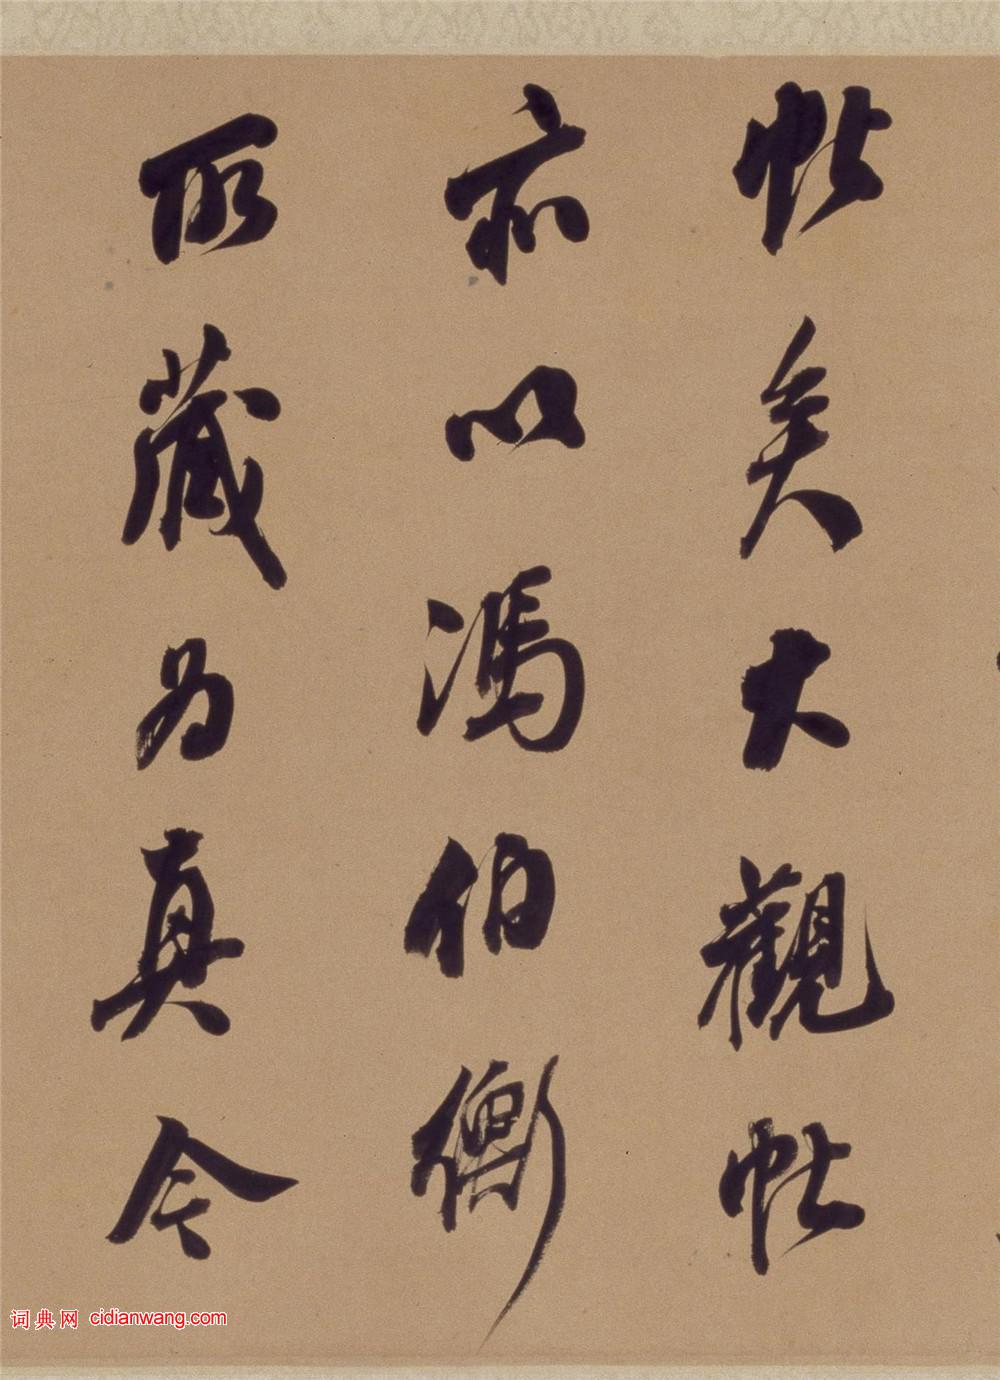 帖矣大觀帖
亦以馮伯衡
所藏為真今
词典网 cidianwang.com